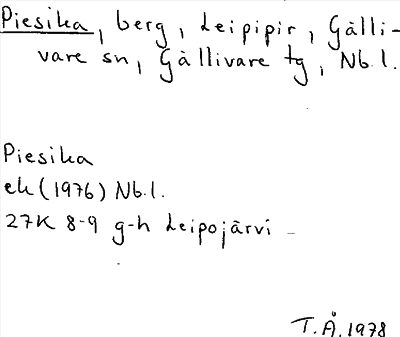 Piesika, berg, Leipipir, Gälli-
vare sn, Gällivare tg, Nb.l.
Piesika
ek (1976) Nb.l.
27K 8-9 g-h Leipojärvi
T.Å. 1978